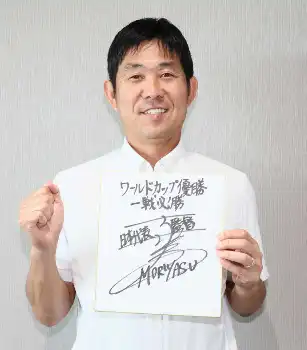 ワールドカップ優勝
一戦必勝
日本代表 監督
MORIYASU